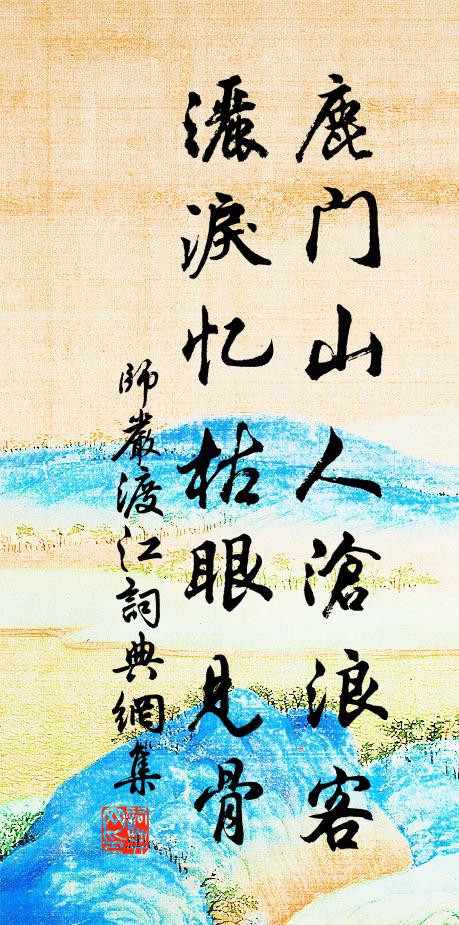 鹿门山人滄浪客
灑淚忆枯眼見骨
師嚴渡江詞典網集